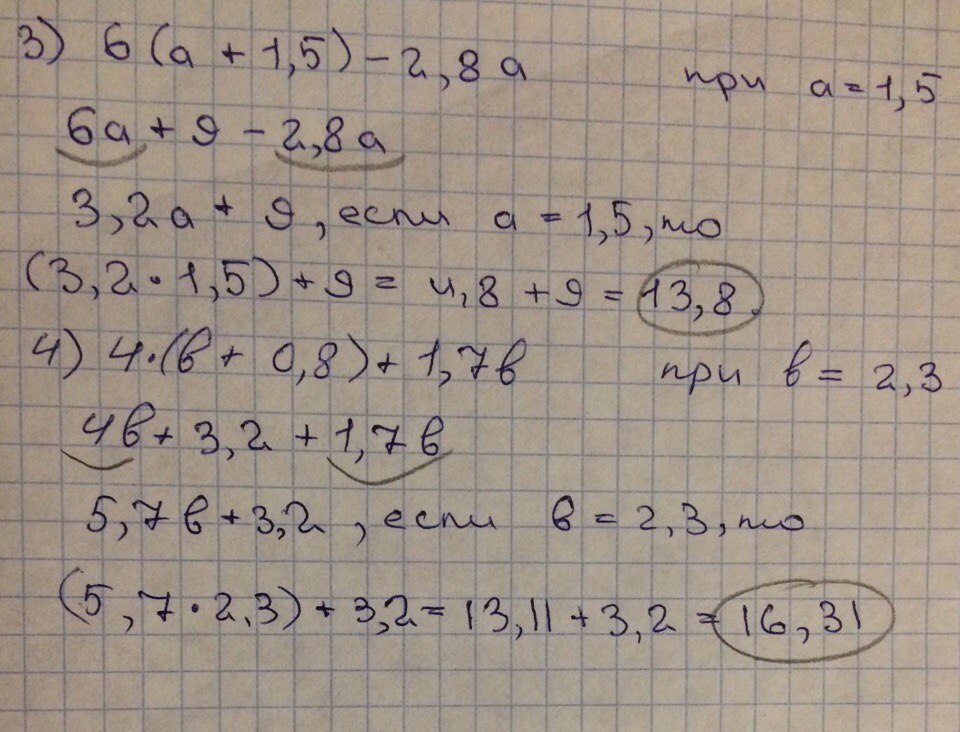 3) 6 (а + 1,5) - 2,8 а при а = 1,5
6а + 9 - 2,8а
3,2а + 9, если а = 1,5, то
(3,2 · 1,5) + 9 = 4,8 + 9 = 13,8
4) 4·(в + 0,8) + 1,7в при в = 2,3
4в + 3,2 + 1,7в
5,7в + 3,2, если в = 2,3, то
(5,7 · 2,3) + 3,2 = 13,11 + 3,2 = 16,31